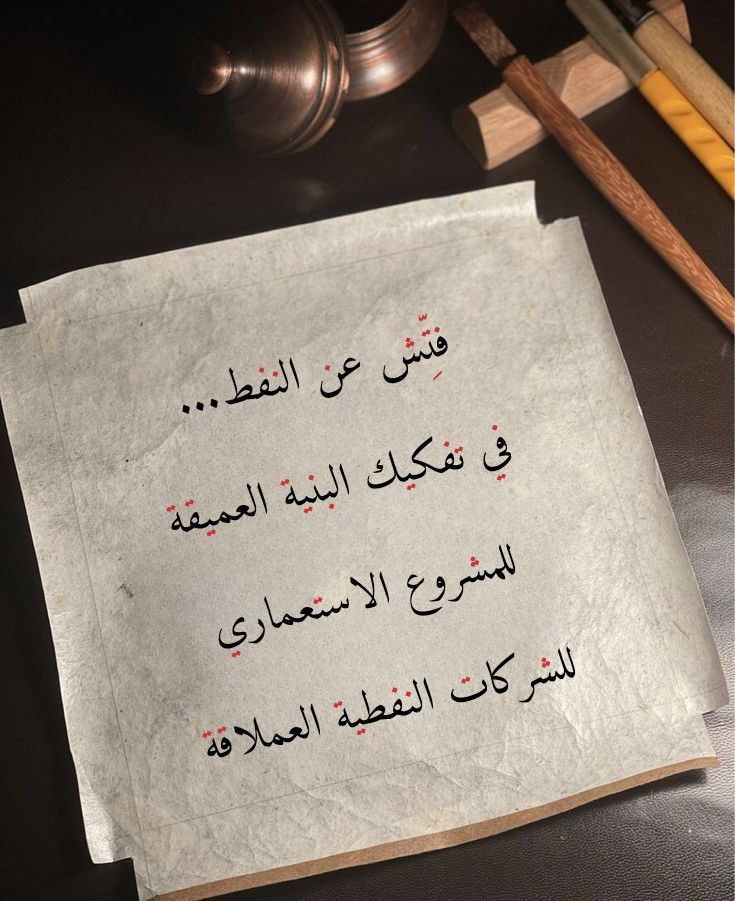 فِتّش عن النفط...
في تفكيك البنية العميقة
للمشروع الاستعماري
للشركات النفطية العملاقة